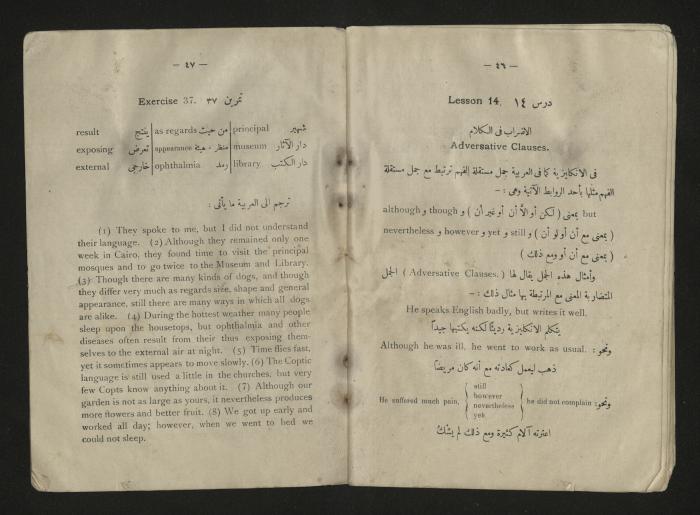 — ٤٦ —
Lesson 14. درس ١٤
الاضراب فى الكلام
Adversative Clauses.
فى الانكليزية كما فى العربية جمل مستقلة الفهم ترتبط مع جمل مستقلة
الفهم مثلها بأحد الروابط الآتية وهى : —
but بمعنى ( لكن أو الا أن أو غير أن ) و though و although
( بمعنى مع أن أو لو أن ) و still و yet و however و nevertheless
( بمعنى مع أن أو ومع ذلك )
وأمثال هذه الجمل يقال لها ( Adversative Clauses. ) الجمل
المتضاربة المعنى مع المرتبطة بها مثال ذلك : —
He speaks English badly, but writes it well.
يتكلم الانكليزية رديئا لكنه يكتبها جيدا
ونحو : Although he was ill, he went to work as usual.
ذهب ليعمل كعادته مع أنه كان مريضا
ونحو : He suffered much pain, { still however nevertheless yet } he did not complain
اعترته آلام كثيرة ومع ذلك لم يشك
— ٤٧ —
Exercise 37. تمرين ٣٧
result ينتج | as regards من حيث | principal شهير
exposing تعرض | appearance منظر . هيئة | museum دار الآثار
external خارجى | ophthalmia رمد | library. دار الكتب
ترجم الى العربية ما يأتى :
(1) They spoke to me, but I did not understand
their language. (2) Although they remained only one
week in Cairo, they found time to visit the principal
mosques and to go twice to the Museum and Library.
(3) Though there are many kinds of dogs, and though
they differ very much as regards size, shape and general
appearance, still there are many ways in which all dogs
are alike. (4) During the hottest weather many people
sleep upon the housetops, but ophthalmia and other
diseases often result from their thus exposing them-
selves to the external air at night. (5) Time flies fast,
yet it sometimes appears to move slowly. (6) The Coptic
language is still used a little in the churches, but very
few Copts know anything about it. (7) Although our
garden is not as large as yours, it nevertheless produces
more flowers and better fruit. (8) We got up early and
worked all day; however, when we went to bed we
could not sleep.